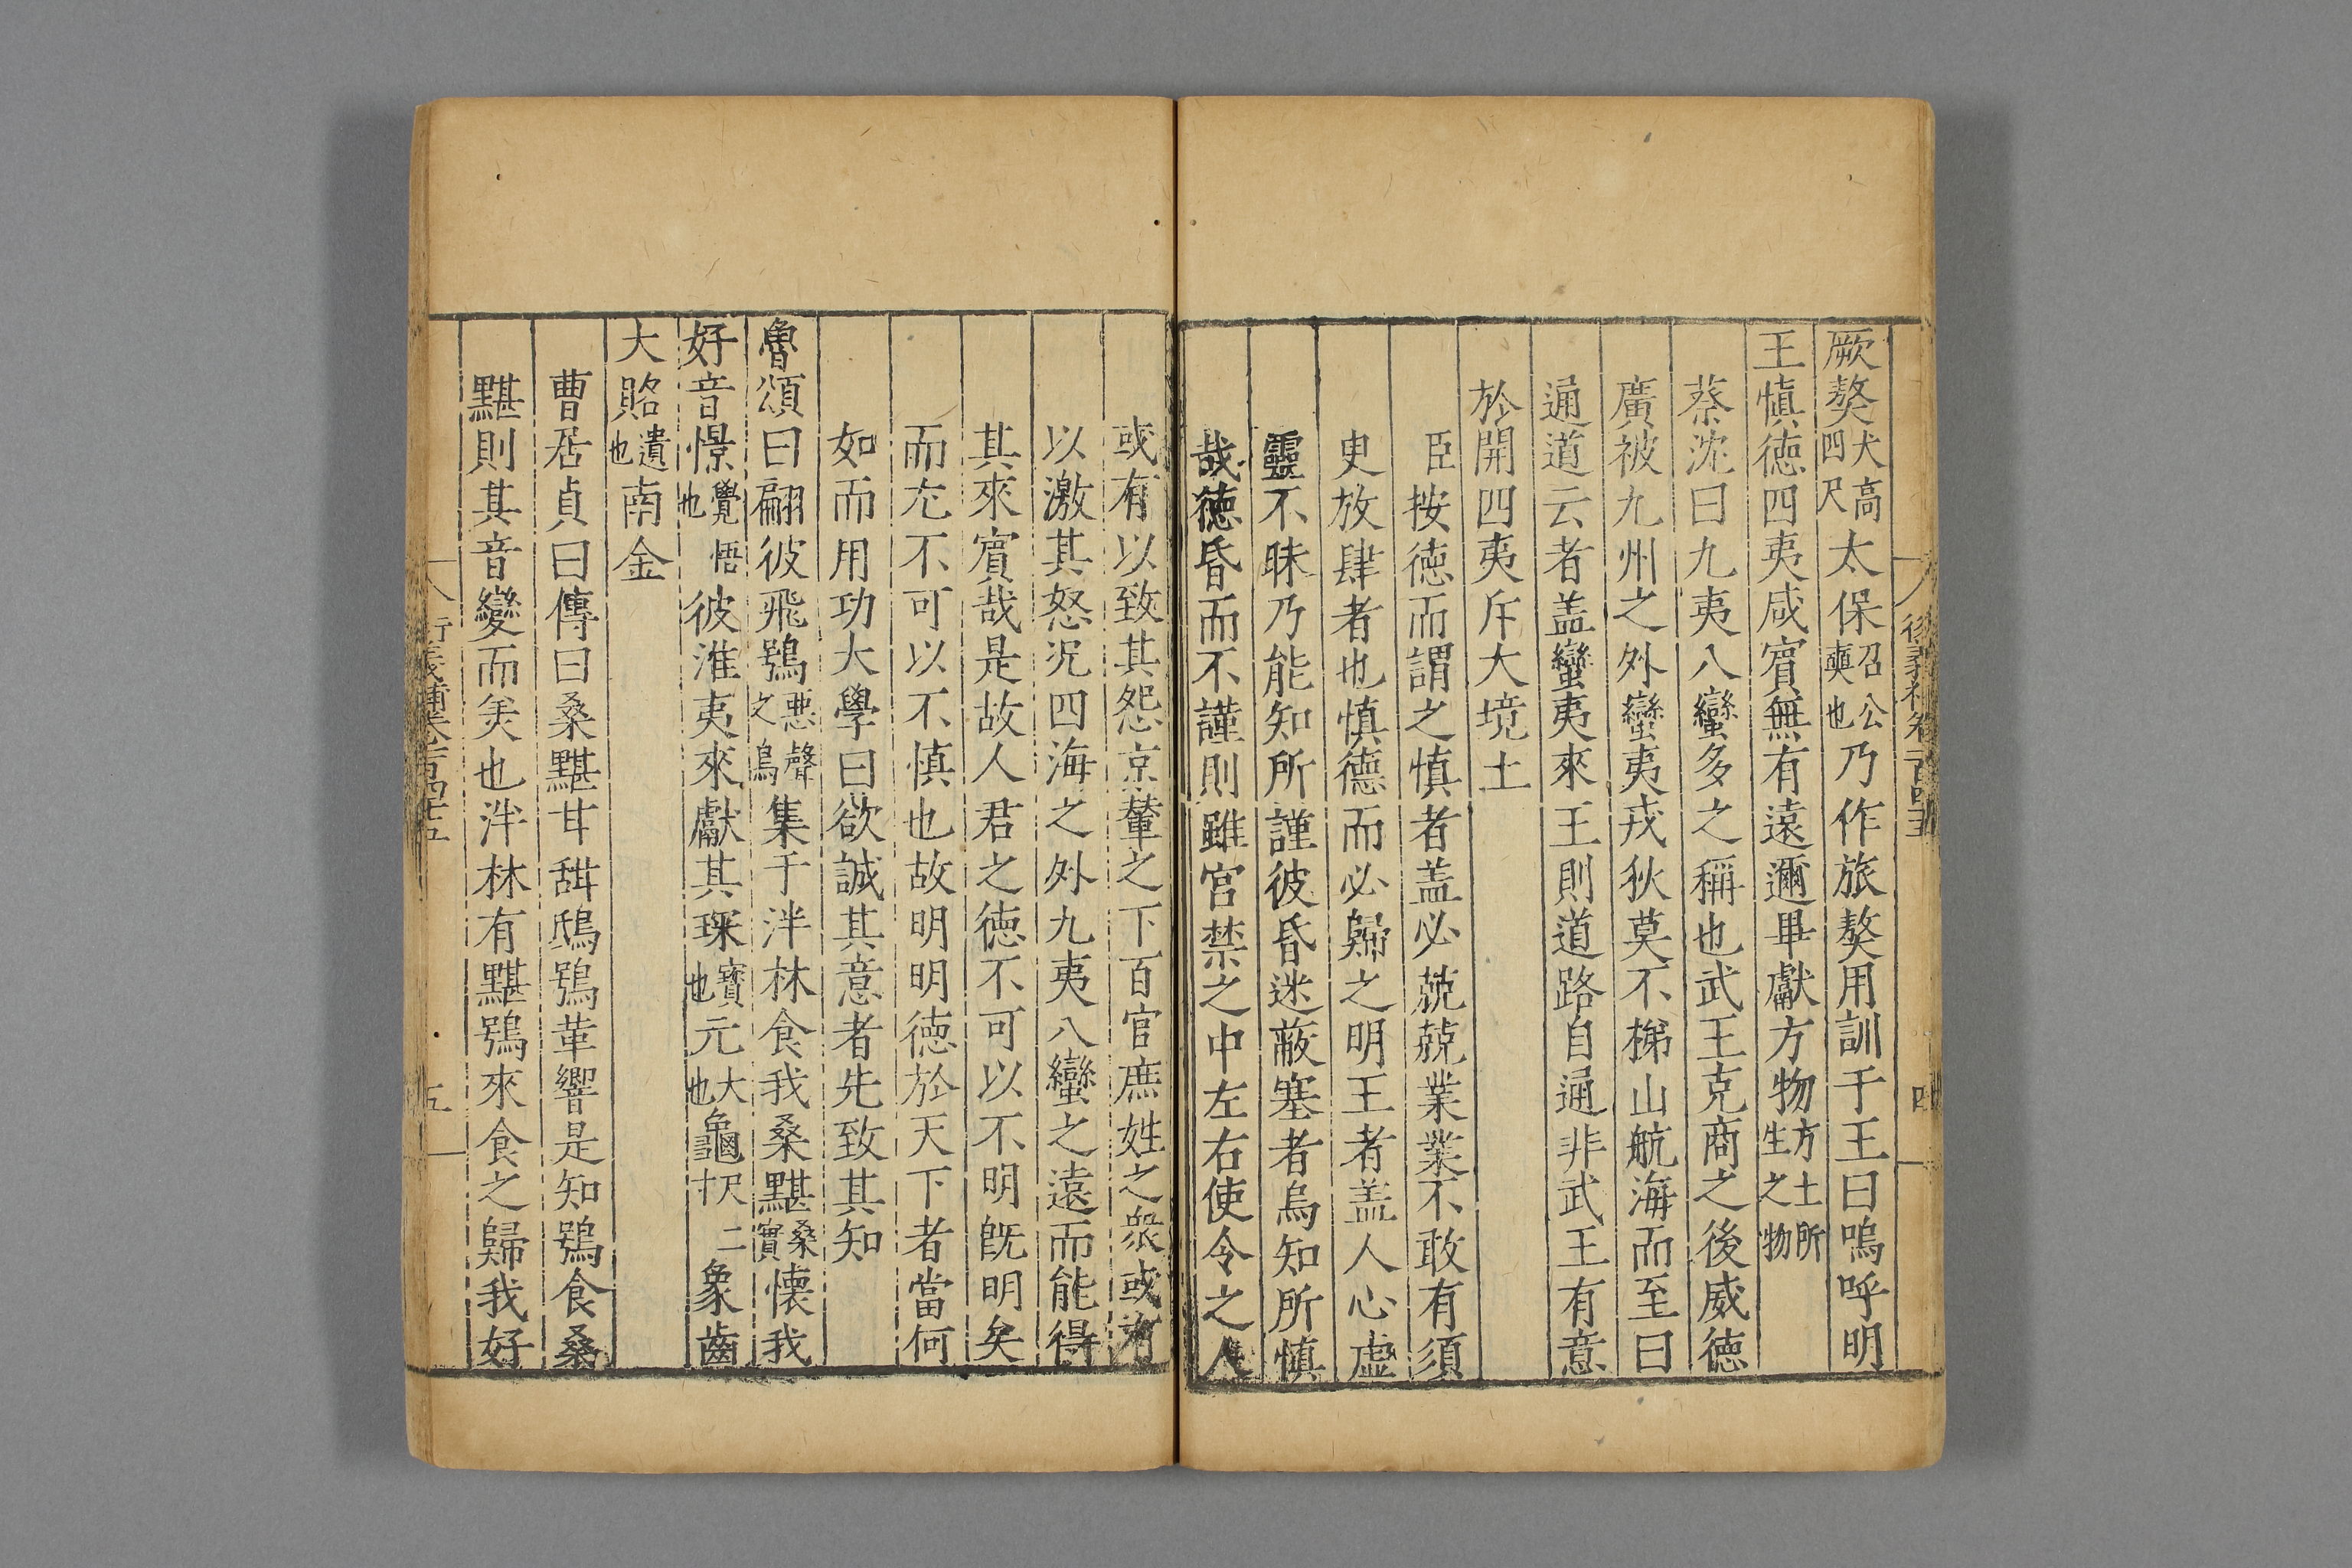 厥獒犬高四尺太保召公奭也乃作旅獒用訓于王曰嗚呼明
王慎德四夷咸賓無有遠邇畢獻方物方土所生之物
蔡沈曰九夷八蠻多之稱也武王克商之後威德
廣被九州之外蠻夷戎狄莫不梯山航海而至曰
通道云者盖蠻夷來王則道路自通非武王有意
於開四夷斥大境土
臣按德而謂之慎者盖必兢兢業業不敢有須
史放肆者也慎德而必歸之明王者盖人心虛
靈不昧乃能知所謹彼昏迷蔽塞者烏知所慎
哉德昏而不謹則雖宮禁之中左右使令之人
或有以致其怨京輦之下百官庶姓之衆或有
以激其怒况四海之外九夷八蠻之遠而能得
其來賓哉是故人君之德不可以不明旣明矣
而尤不可以不慎也故明明德於天下者當何
如而用功大學曰欲誠其意者先致其知
魯頌曰翩彼飛鴞惡聲之鳥集于泮林食我桑黮桑實懐我
好音憬覺悟也彼淮夷來獻其琛寶也元大也龜尺二寸象齒
大賂遺也南金
曹居貞曰傳曰桑黮甘甜鴟鴞革響是知鴞食桑
黮則其音變而美也泮林有黮鴞來食之歸我好
四
五